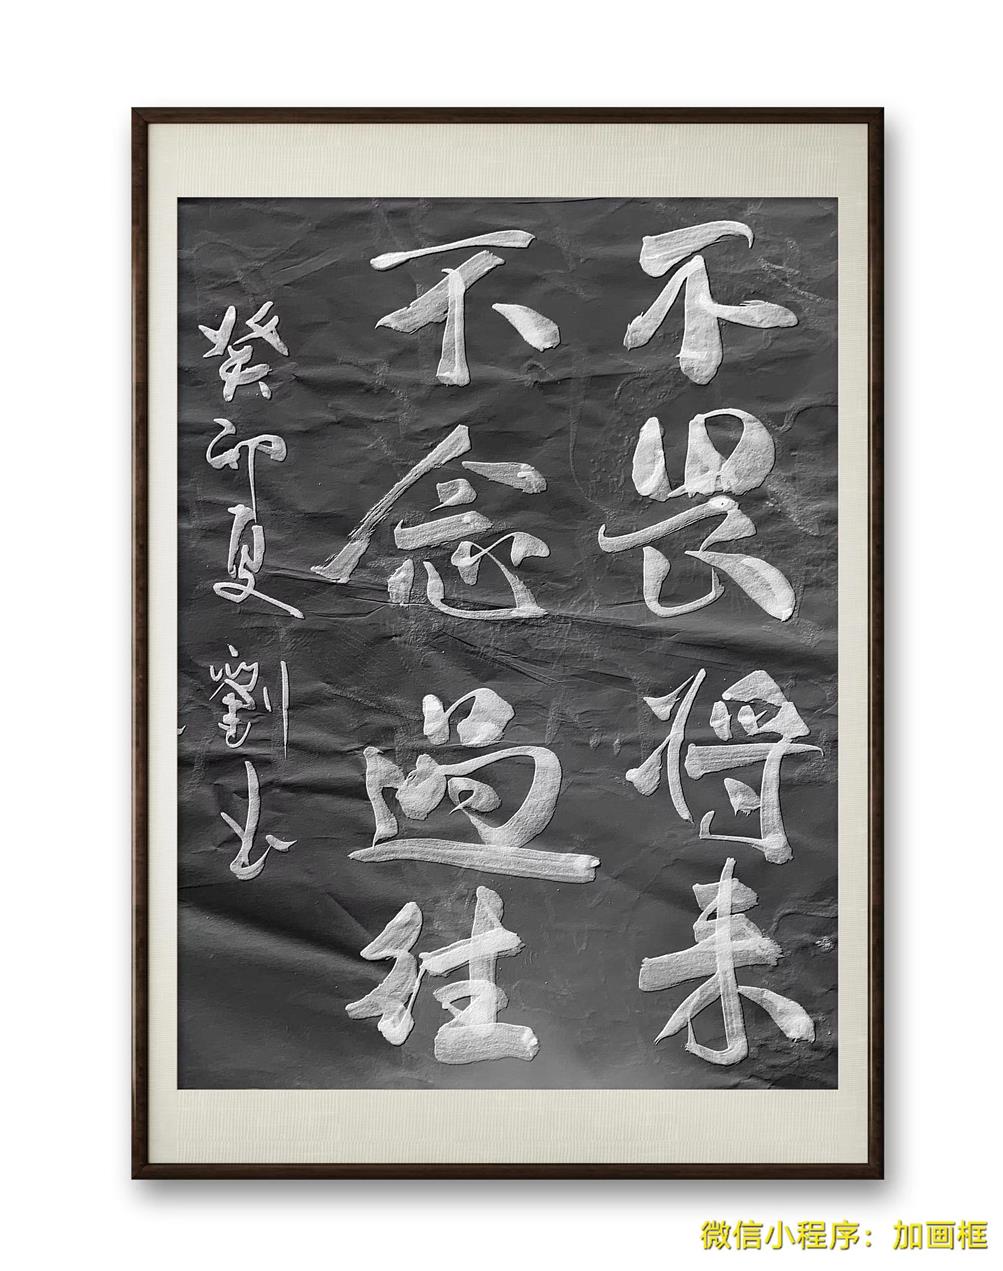 不畏将来
不念過往
癸卯夏 劉
微信小程序：加画框